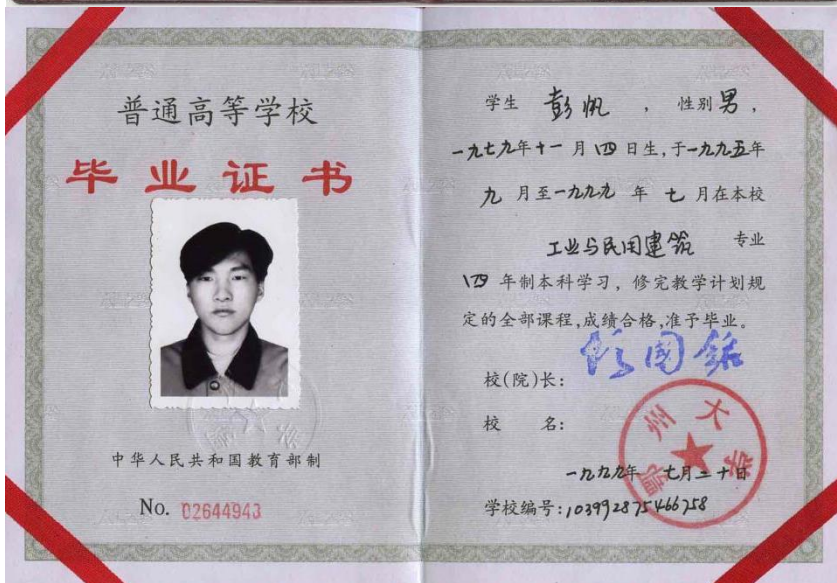 普通高等学校
毕业证书
中华人民共和国教育部制
No. 02644943
学生 彭帆 ，性别男，
一九七九年十一月四日生,于一九九五年
九月至一九九九年七月在本校
工业与民用建筑 专业
四年制本科学习，修完教学计划规
定的全部课程,成绩合格,准予毕业。
校(院)长：
校 名：
州大学
一九九九年七月二十日
学校编号：103992875466758